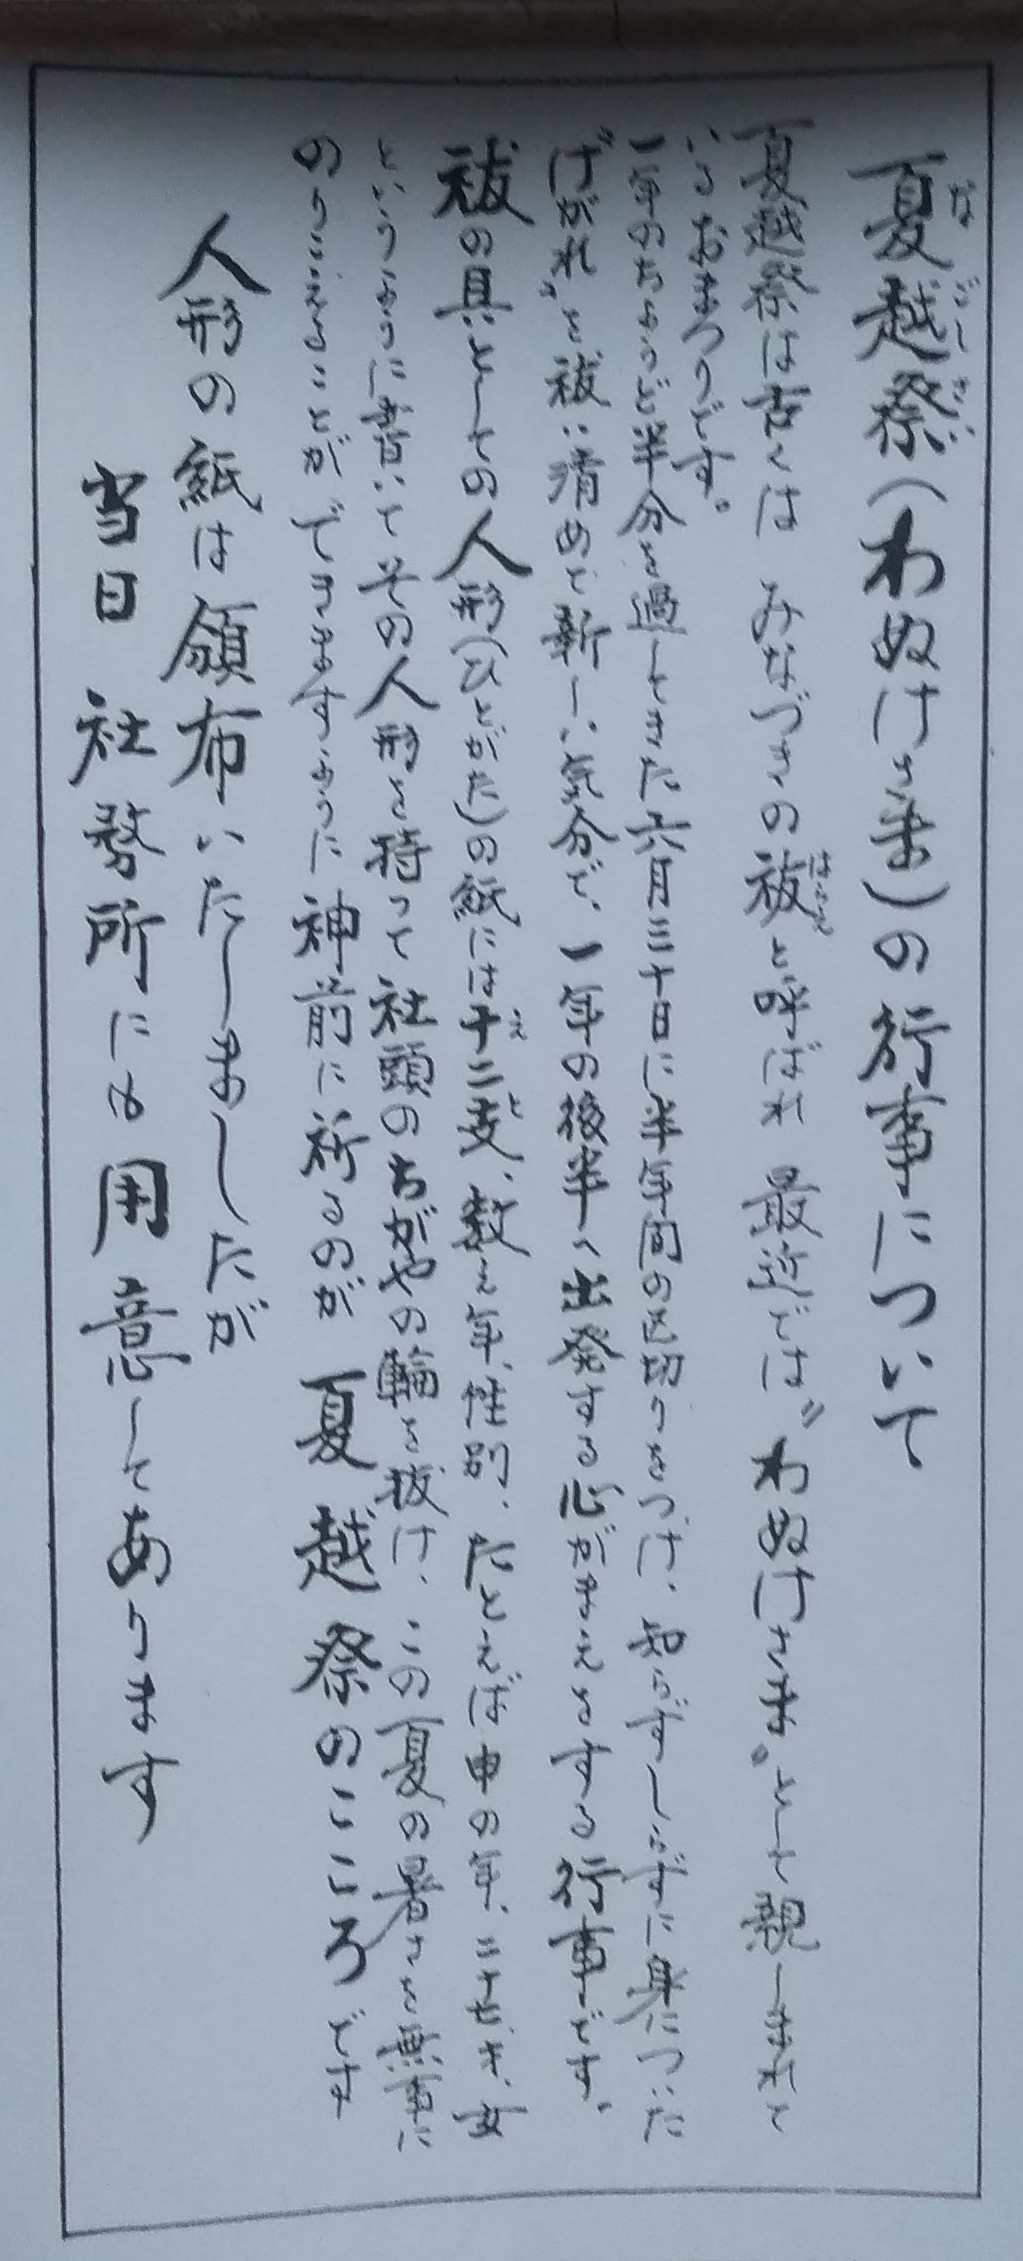 夏越祭(わぬけさま)の行事について
なごしさい
夏越祭は古くは みなづきの祓と呼ばれ 最近では〝わぬけさま〟として親しまれて
はらえ
いるおまつりです。
一年のちょうど半分を過しときた六月三十日に半年間の区切りをつけ、知らずしらずに身についた
〝けがれ〟を祓い清めて新しい気分で、一年の後半へ出発する心がまえをする行事です。
祓の具としての人形(ひとがた)の紙には十二支、数え年、性別、たとえば申の年、二十七才、女
えと
というように書いてその人形を持って社頭のちがやの輪を抜け、この夏の暑さを無事に
のりこえることができますように神前に祈るのが 夏越祭のこころです
人形の紙は領布いたしましたが
当日 社務所にも用意してあります